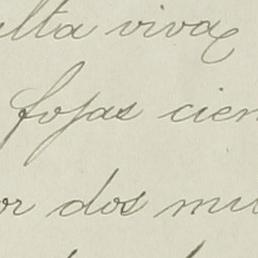 ulta viva
fojas cien
or dos mu